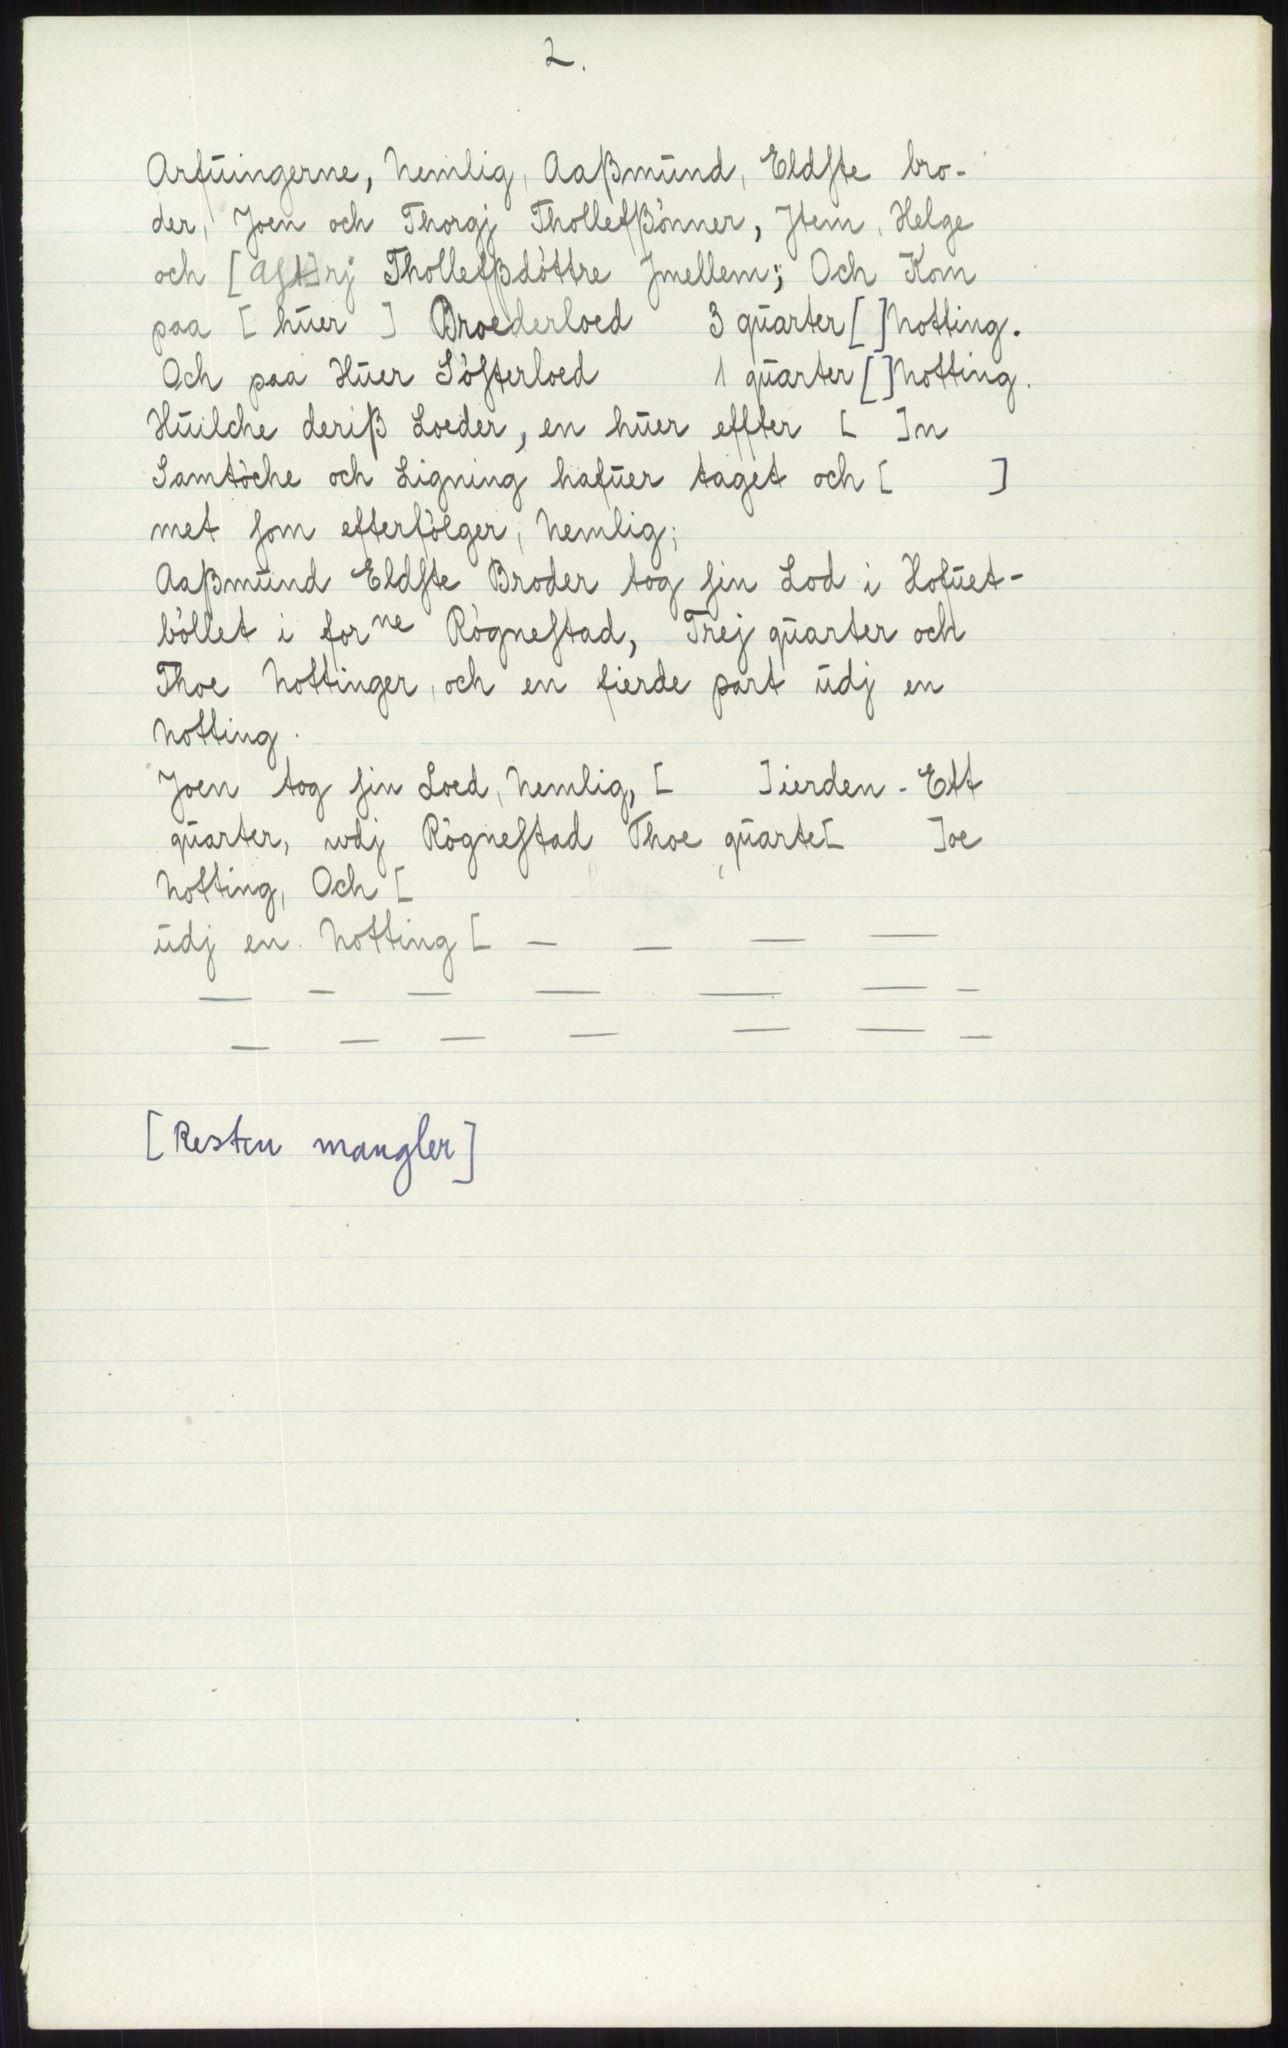 2.
Arfuingerne, Nemlig, Aaßmund, Eldste bro-
der, Joen och Thorgj Thollefßønner, Jtem, Helge
och [Ast]rj Thollefßdøttre Jmellem; Och Kom
paa [ huer ] Broederloed 3 quarter [ ] Notting.
Och paa Huer Søsterloed 1 quarter [ ] Notting.
Huilche deriß Loeder, en huer effter [ ]n
Samtøche och Ligning hafuer taget och [ ]
met som efterfølger, Nemlig;
Aaßmund Eldste Broder tog sin Lod i Hofuet-
bøllet i forne Røgnestad, Trej quarter och
Thoe Nottinger, och en fierde part udj en
Notting.
Joen tog sin Loed, Nemlig, [ ]ierden - Ett
quarter, wdj Røgnestad Thoe quarte[ ]oe
Notting, Och [
udj en Notting [ — — — —
— — — — — — —
— — — — — — —
[Resten mangler]